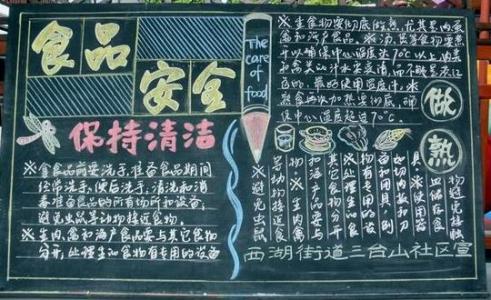 食品
安全
The
care
of
food
保持清洁
※拿食品前要洗手,准备食品期间
经常洗手,便后洗手,清洗和消
毒准备食品的所有场所和设备,
避免虫鼠等动物接近食物。
※生肉禽和海产食品要与其它食物
分开,处理生的食物有专用的设备
※生食物要彻底的做熟,尤其是肉蛋
禽和海产食品。※汤、煲等食物要煮
开以确保中心温度达70℃以上,肉类
和禽类的汁水要变清,而不能是淡红
色的。最好使用温度计。※
熟食再次加热要彻底,确
保中心温度超过70℃。
做
熟
物避免接触
皿储存食
※使用器
如切肉板和刀
备和用具,例
物有专用的设
※处理生的食
食物分开。
和海产品要与
物。※生肉禽
等动物接近食
※避免虫鼠
西湖街道三台山社区宣